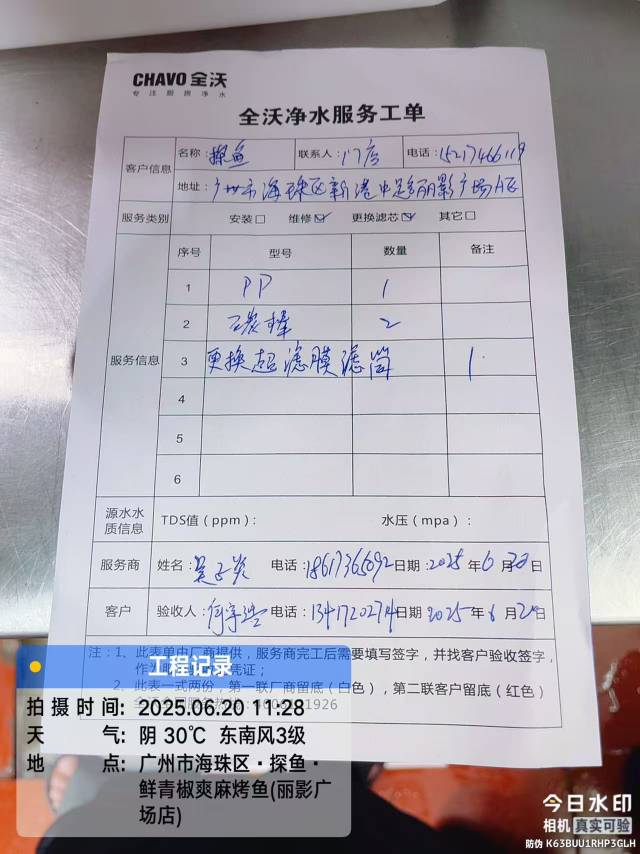 CHAVO 全沃
专注厨房净水
全沃净水服务工单
客户信息 名称: 探鱼 联系人: 门店 电话: 15217466119
地址: 广州市海珠区新港中路丽影广场A区
服务类别 安装☐ 维修☑ 更换滤芯☑ 其它☐
服务信息 序号 型号 数量 备注
1 PP 1
2 碳棒 2
3 更换超滤膜滤筒 1
4
5
6
源水水质信息 TDS值(ppm): 水压(mpa):
服务商 姓名: 电话: 日期: 2025年6月20日
客户 验收人: 电话: 日期 2025年6月20日
注: 1、此表单由厂商提供,服务商完工后需要填写签字,并找客户验收签字,
凭证;
2、此表一式两份,第一联厂商留底(白色),第二联客户留底(红色)
工程记录
拍摄时间: 2025.06.20 11:28
天气: 阴 30℃ 东南风3级
地点: 广州市海珠区·探鱼·
鲜青椒爽麻烤鱼(丽影广
场店)
今日水印
相机 真实可验
防伪 K63BUU1RHP3GLH